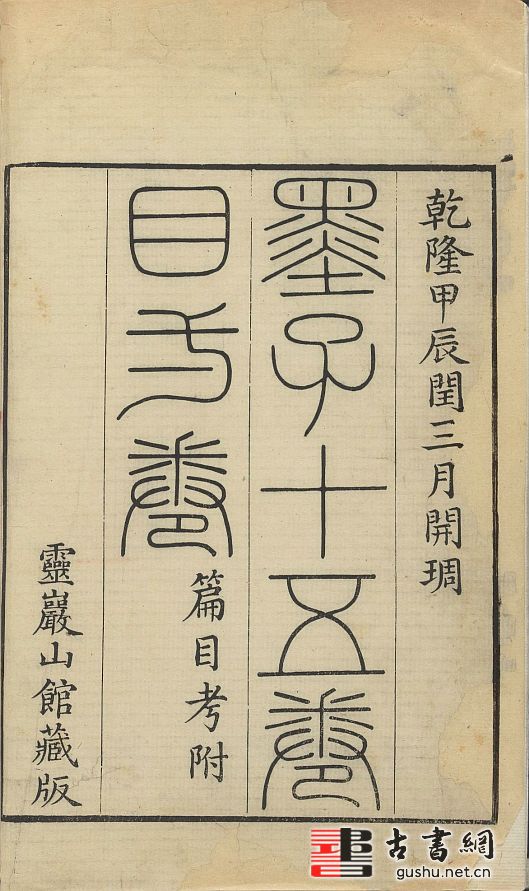 乾隆甲辰閏三月開琱
墨子十五卷
目一卷
篇目考附
靈巖山館藏版
古書網
gushu.net.cn